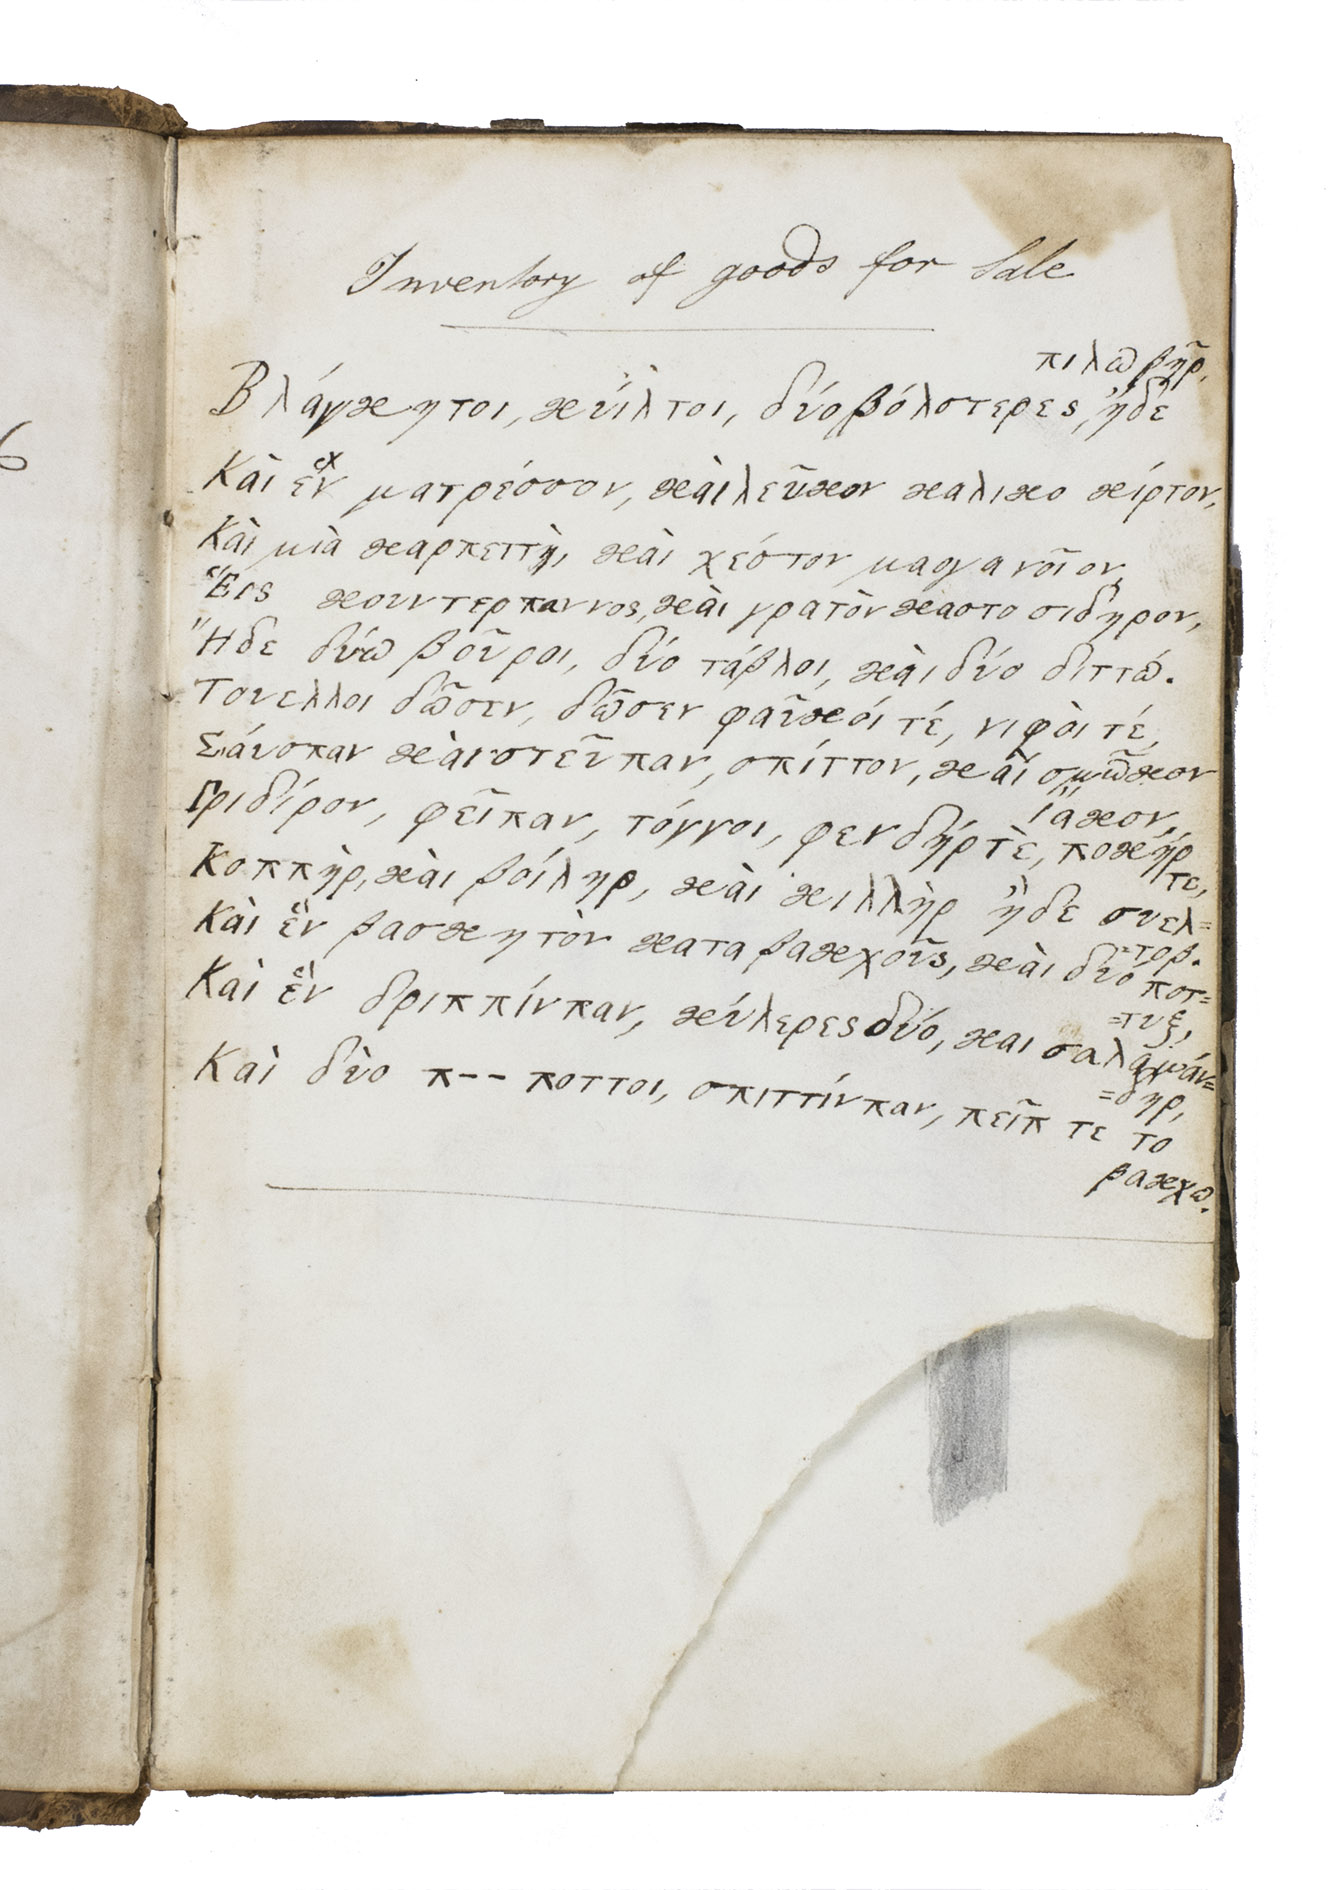 Inventory of goods for Sale
πιλωβῆρ,
Βλάγκητοι, κύιλτοι, δύο βόλστερες, ἤδε
Καὶ ἓν ματρέσσον, καὶ λεῦκον καλικο κίρτον,
Καὶ μιὰ καρπεττὴ, καὶ χέστον μαογανοῖον,
Ἕις κουντερπαννος, καὶ γρατὸν καστο σιδηρον,
Ἤδε δύω βοῦροι, δύο τάβλοι, καὶ δύο διττώ.
Τουελλοι δῶσεν, δῶσεν φαῦκόι τέ, νιφὸι τέ,
Σάυσπαν καὶ στεῦπαν, σπίττον, καὶ σμῶκον
ἴακον,
Γριδίρον, φεῖπαν, τόγγοι, φενδήρ τὲ, ποκήρ
τε,
Κοππὴρ, καὶ βόιληρ, καὶ κιλλὴρ ἤδε συελ=
=τοβ.
Καὶ ἓν βασκητὸν κατα βακχοῦς, καὶ δυό
ποτ=
=τυξ,
Καὶ ἓν δριππίνπαν, κύλερες δύο, και σαλαμάν=
=δηρ,
Καὶ δὺο π-- ποττοι, σπιττίνπαν, πεῖπ τε το
βακχω.